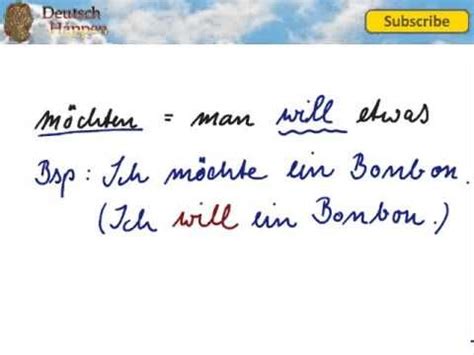 Deutsch
Happen
Subscribe
möchten = man will etwas
Bsp: Ich möchte ein Bonbon.
(Ich will ein Bonbon.)